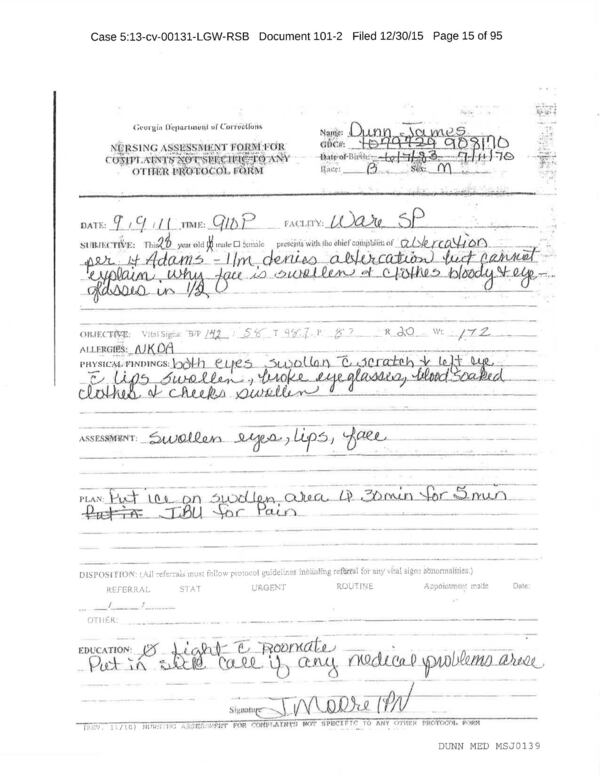 Case 5:13-cv-00131-LGW-RSB Document 101-2 Filed 12/30/15 Page 15 of 95
Georgia Department of Corrections
NURSING ASSESSMENT FORM FOR
COMPLAINTS NOT SPECIFIC TO ANY
OTHER PROTOCOL FORM
Name: Dunn James
GDC#: 1079729 908170
Date of Birth: 7/11/70
Race: B Sex: M
DATE: 9/9/11 TIME: 910P FACILITY: Ware SP
SUBJECTIVE: This year old male ☐ female presents with the chief complaint of altercation
per Lt Adams - I/m denies altercation but cannot
explain why face is swollen & clothes bloody & eye-
glasses in 1/2
OBJECTIVE: Vital Signs: B/P 142 / 58 T 98.7 P R 20 Wt: 172
ALLERGIES: NKDA
PHYSICAL FINDINGS: both eyes swollen c̄ scratch left eye
c̄ lips swollen, broke eyeglasses, blood soaked
clothes & cheeks swollen
ASSESSMENT: Swollen eyes, lips, face
PLAN: Put ice on swollen area 30min for 5min
Put in IBU for Pain
DISPOSITION: (All referrals must follow protocol guidelines including referral for any vital signs abnormalities.)
REFERRAL STAT URGENT ROUTINE Appointment made Date:
OTHER:
EDUCATION: Ø fight c̄ Roomate
Put in sick call if any medical problems arose
Signature J Moore LPN
(REV. 11/10) NURSING ASSESSMENT FOR COMPLAINTS NOT SPECIFIC TO ANY OTHER PROTOCOL FORM
DUNN MED MSJ0139